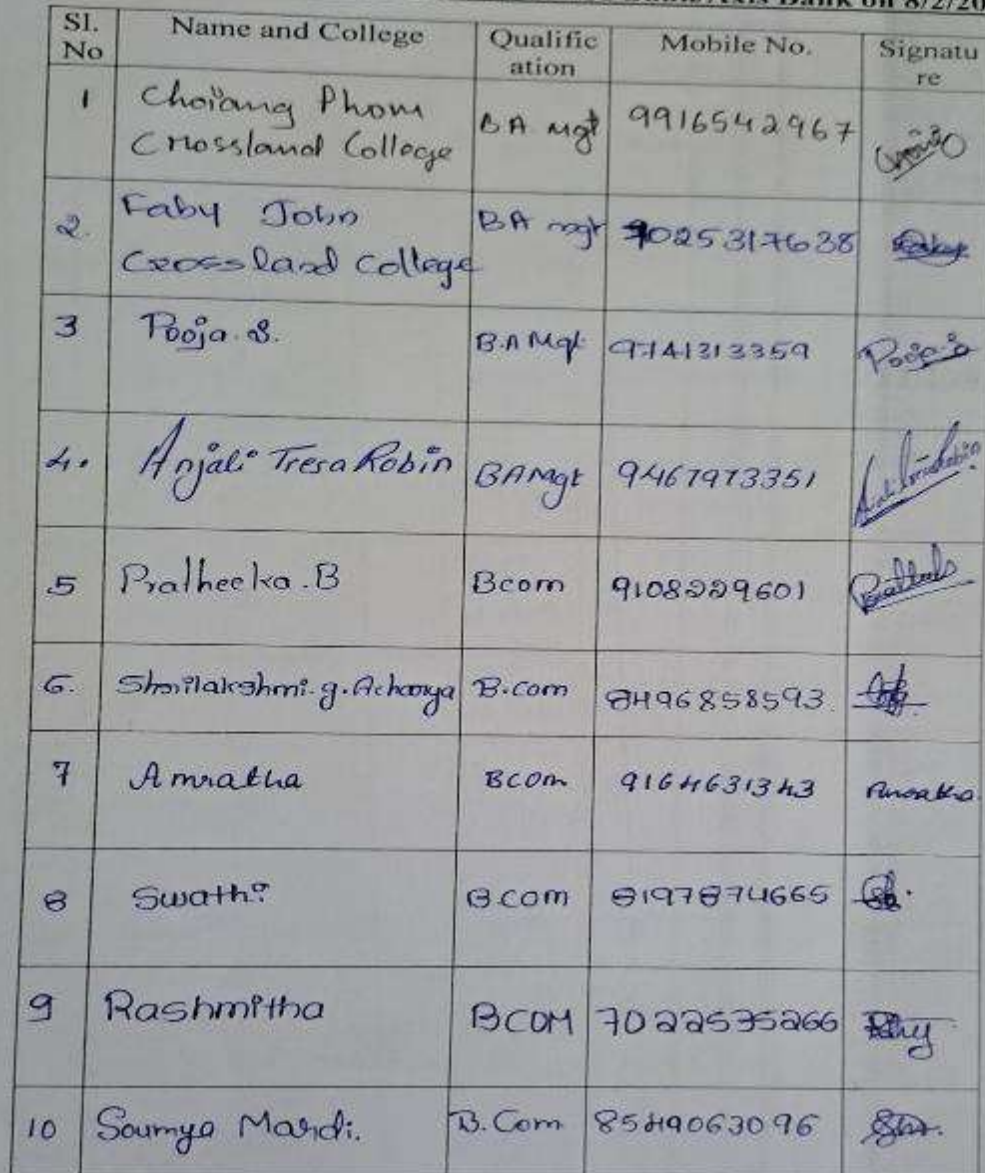 Axis Bank on 8/2/20
Sl. No Name and College Qualific ation Mobile No. Signatu re
1 Choiang Phom BA Mgt 9916542967
Crossland College
2. Faby John BA mgt 7025317638
Crossland College
3 Pooja.S. B.A Mgt 9741313359 Pooja.S
4. Anjali Tresa Robin BAMgt 9467973351
5 Pratheeka.B Bcom 9108229601
6. Shrilakshmi.g.Acharya B.com 8496858593
7 Amratha Bcom 9164631343 Amratha
8 Swathi B.com 8197874665
9 Rashmitha BCOM 7022535266
10 Soumya Mardi. B.Com 8549063096